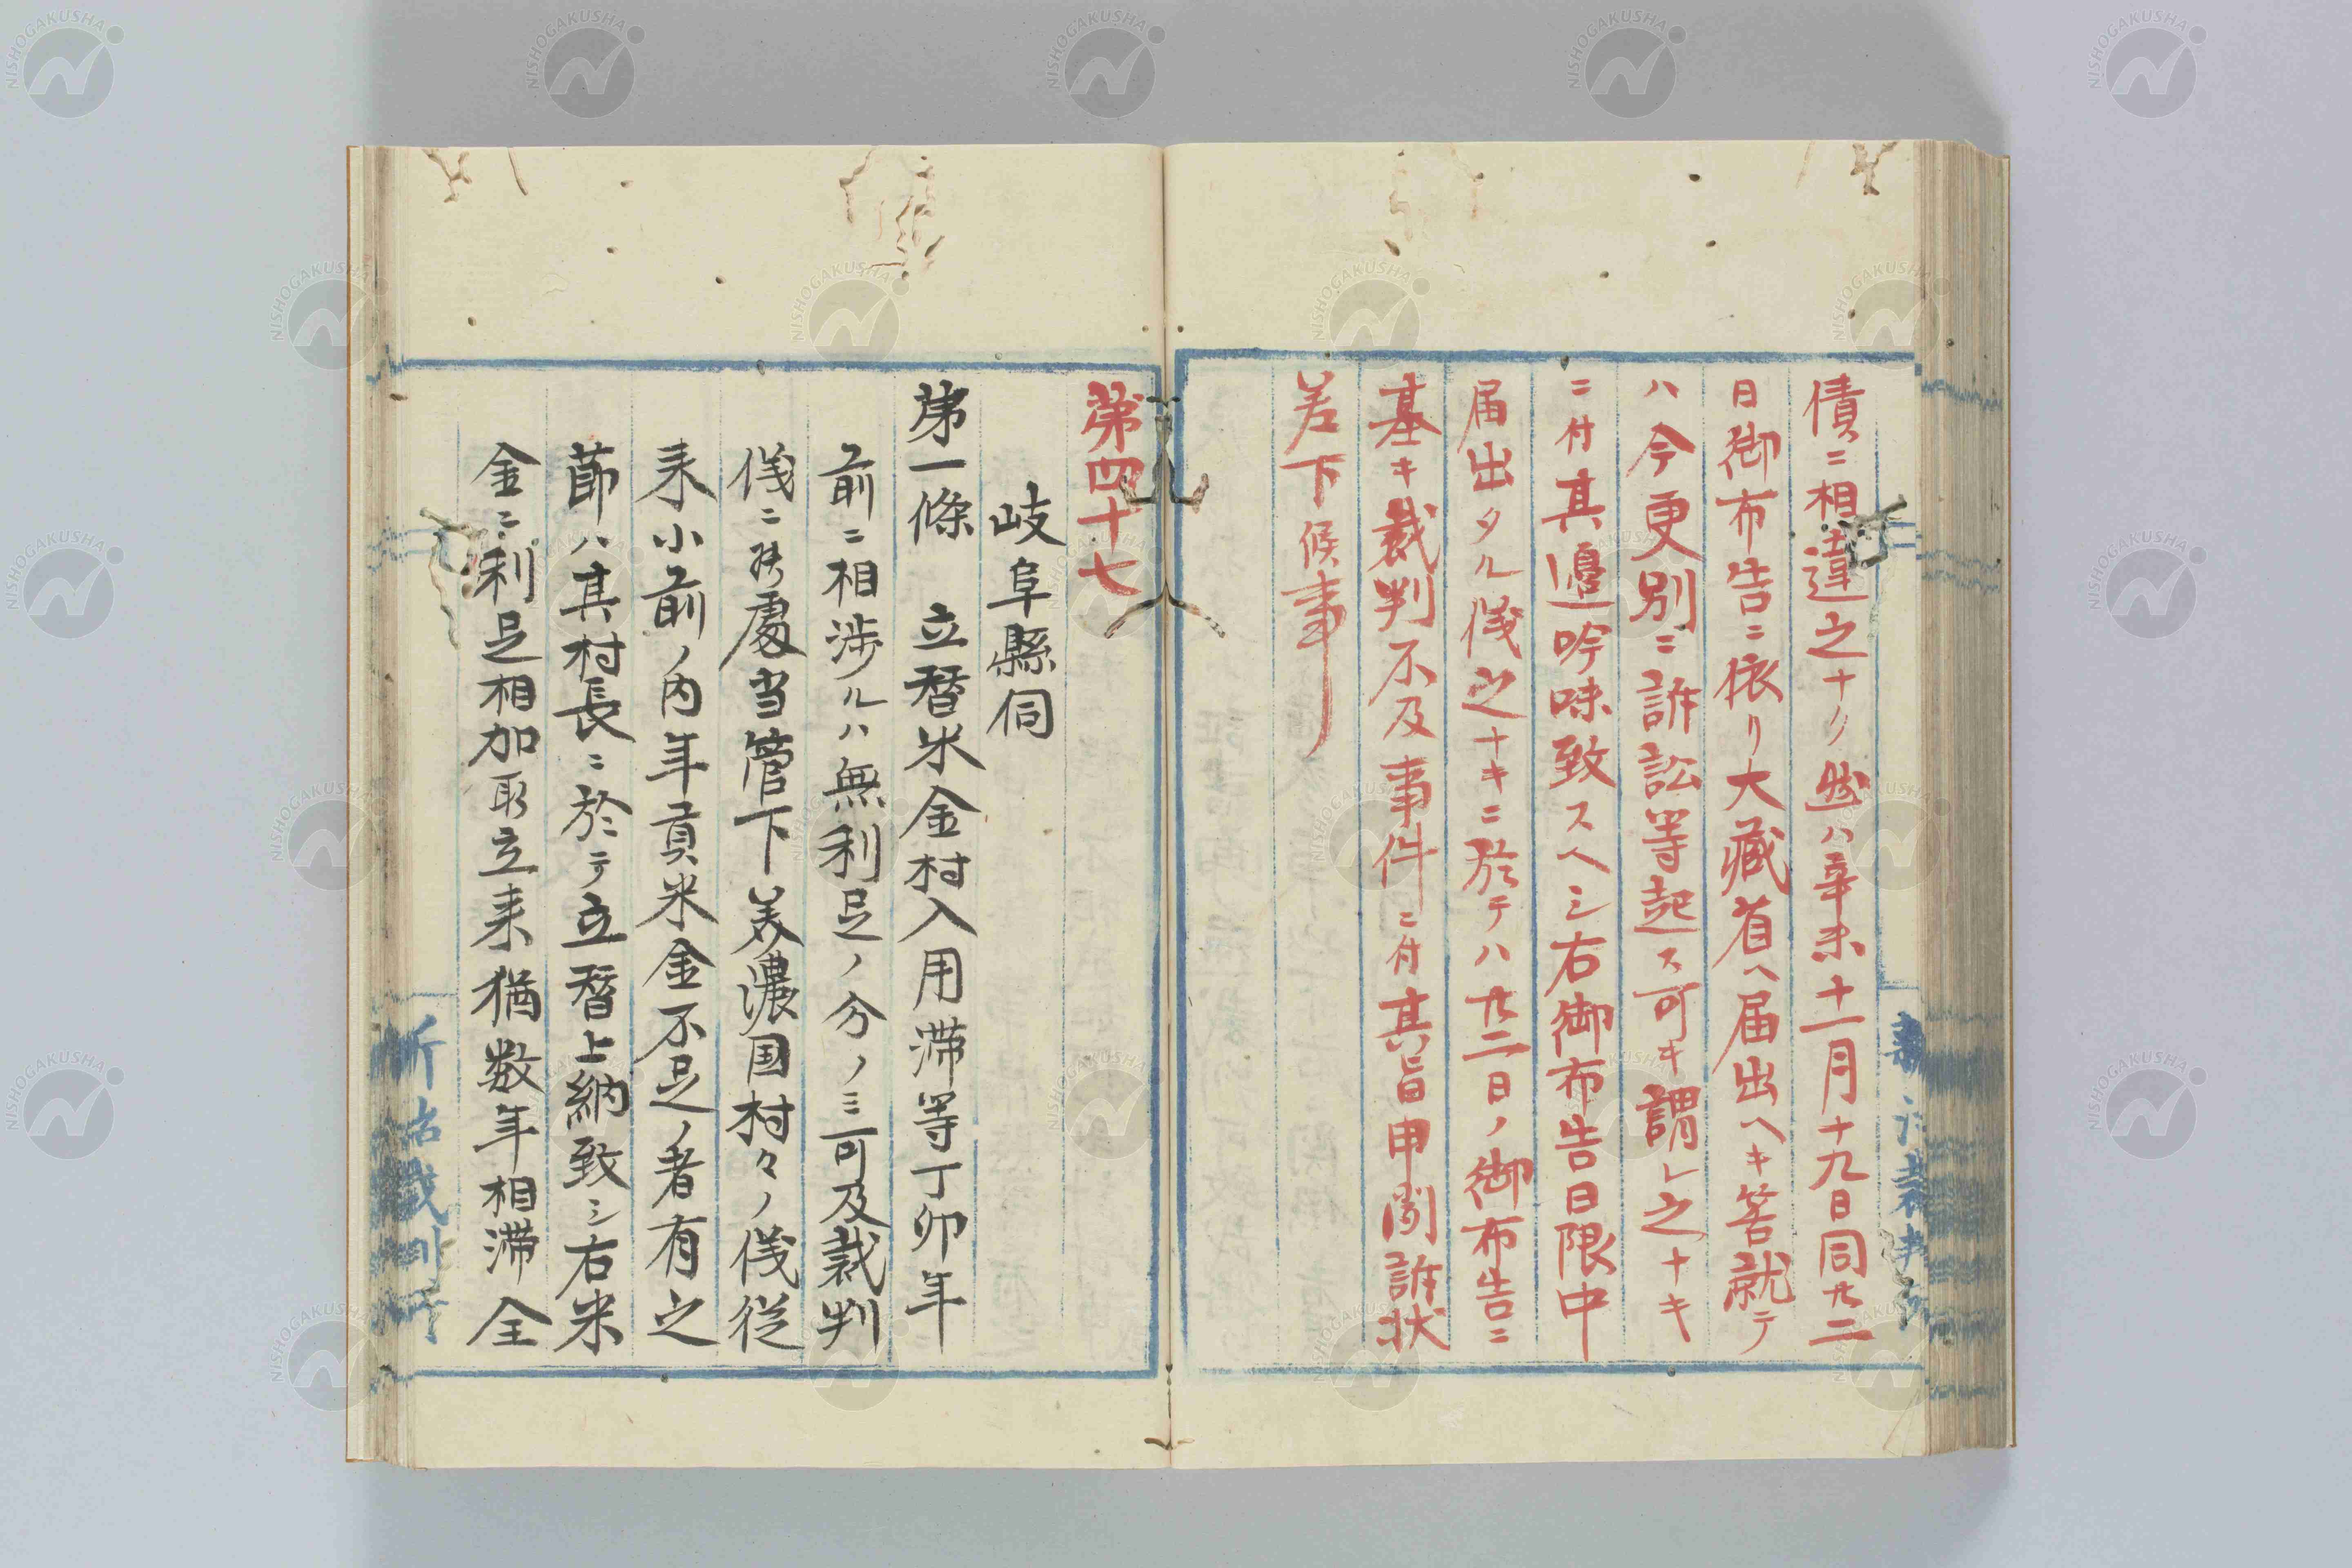 債ニ相違之ナク然ハ辛未十一月十九日同廿二
日御布告ニ依リ大蔵省ヘ届出ヘキ筈就テ
ハ今更別ニ訴訟等起ス可キ謂レ之ナキ
ニ付其邉吟味致スヘシ右御布告日限中
届出タル儀之ナキニ於テハ廿二日ノ御布告ニ
基キ裁判不及事件ニ付其旨申聞訴状
差下候事
第四十七
岐阜縣伺
第一條 立替米金村入用滞等丁卯年
前ニ相渉ルハ無利足ノ分ノミ可及裁判
儀ニ候處当管下美濃国村々ノ儀従
来小前ノ内年貢米金不足ノ者有之
節ハ其村長ニ於テ立替上納致シ右米
金ニ利足相加取立来猶数年相滞全
NISHOGAKUSHA